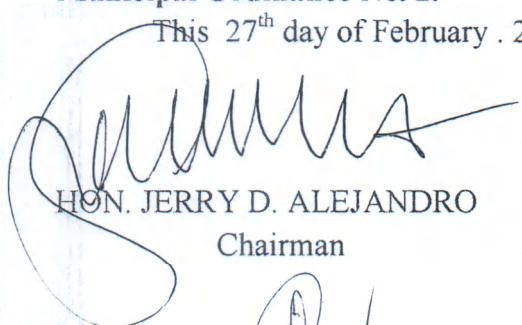 This 27th day of February . 2
HON. JERRY D. ALEJANDRO
Chairman